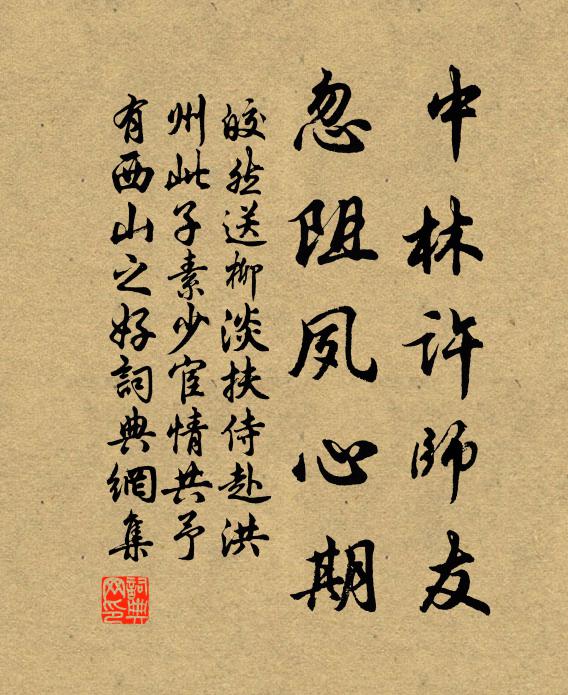 中林許師友
忽阻夙心期
皎然送柳淡扶侍赴洪
州此子素少宦情共予
有西山之好詞典網集
詞典网印